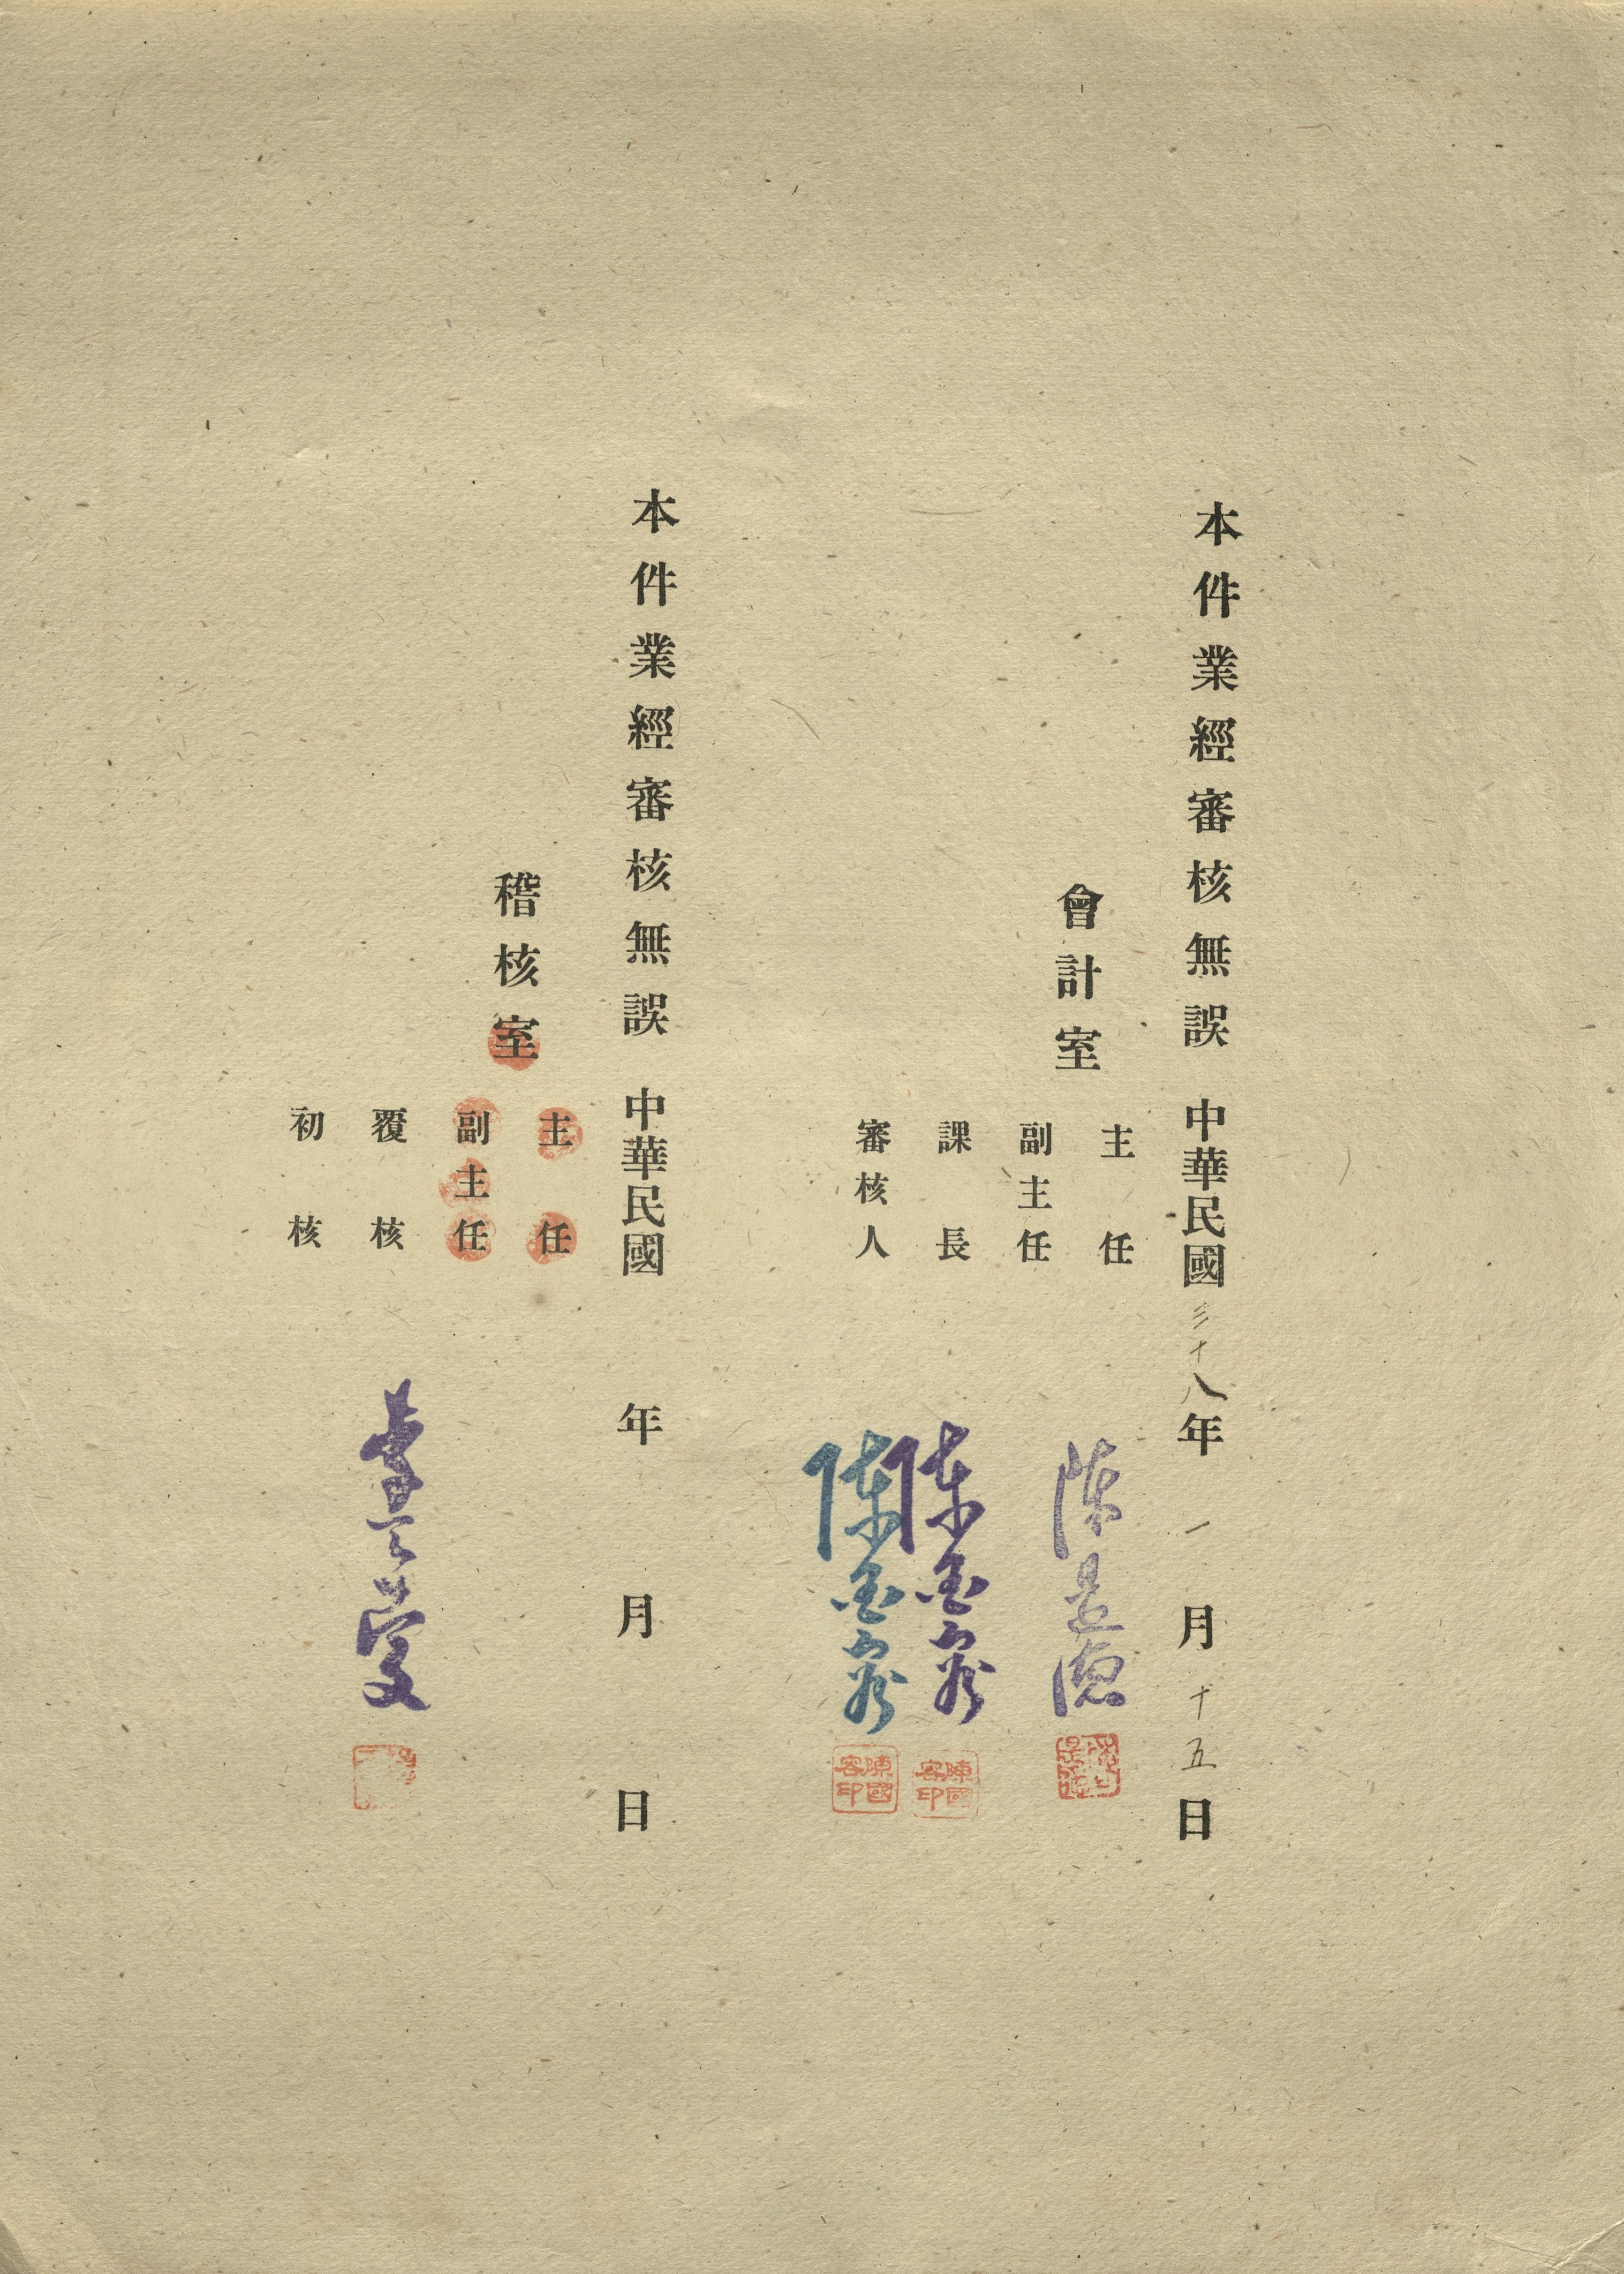 本件業經審核無誤 中華民國三十八年一月十五日
會計室
主任
副主任 陳
課長 陳國容
陳國容印
審核人 陳國容
陳國容印
本件業經審核無誤 中華民國 年 月 日
稽核室
主任
副主任
覆核
初核